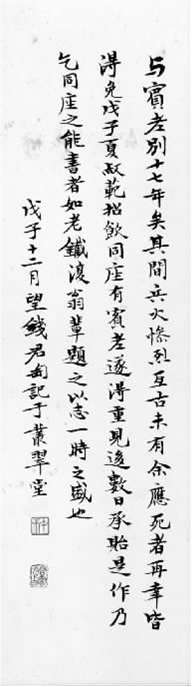 与賓老別十七年矣其間兵火慘烈亙古未有余應死者再幸皆
得免戊子夏叔範招飲同座有賓老遂得重見後數日承貽是作乃
乞同座之能書者如老鐵浚翁輩題之以志一時之盛也
戊子十二月望錢君匋記于叢翠堂